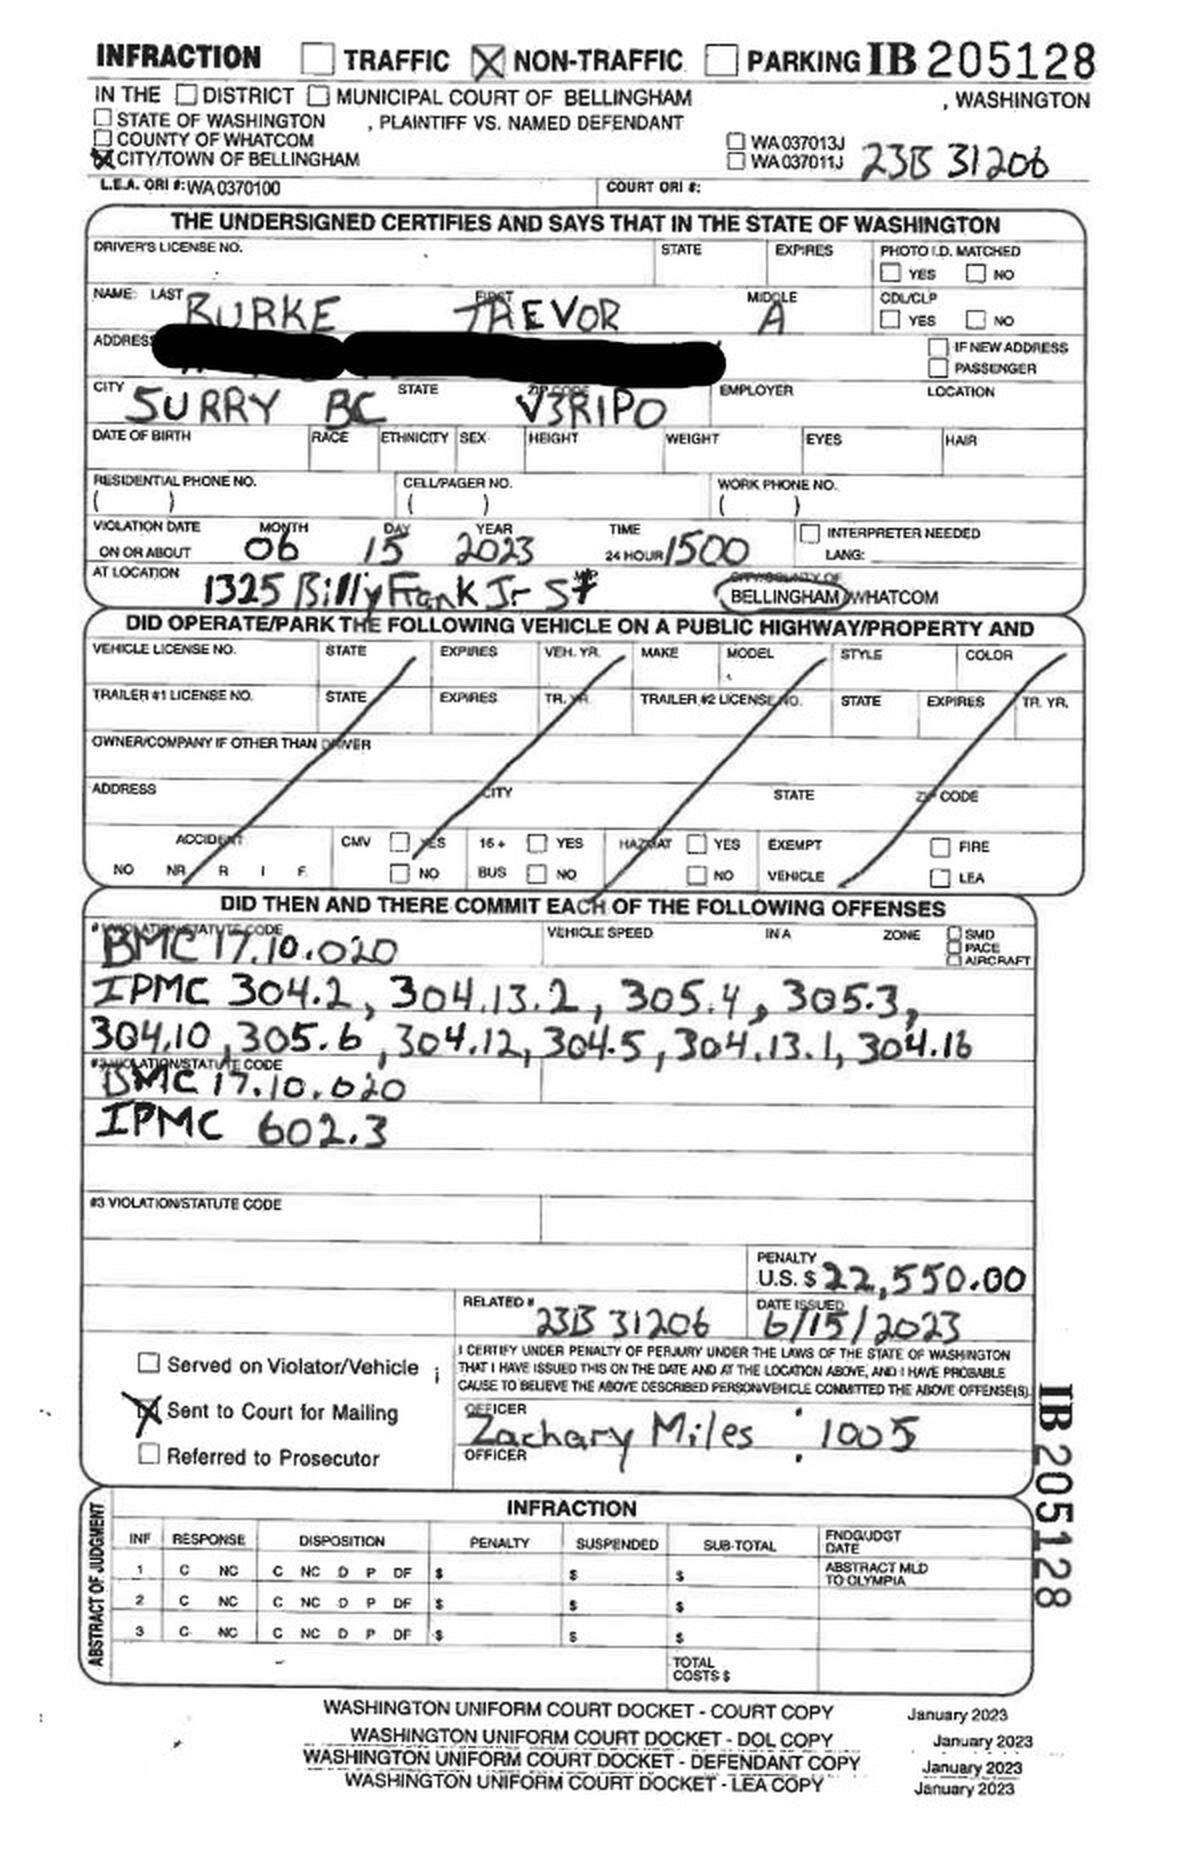 INFRACTION TRAFFIC NON-TRAFFIC PARKING IB 205128
IN THE DISTRICT MUNICIPAL COURT OF BELLINGHAM , WASHINGTON
STATE OF WASHINGTON , PLAINTIFF VS. NAMED DEFENDANT
COUNTY OF WHATCOM WA 037013J
CITY/TOWN OF BELLINGHAM WA 037011J 23B 31206
L.E.A. ORI #: WA 0370100 COURT ORI #:
THE UNDERSIGNED CERTIFIES AND SAYS THAT IN THE STATE OF WASHINGTON
DRIVER'S LICENSE NO. STATE EXPIRES PHOTO I.D. MATCHED
YES NO
NAME: LAST FIRST MIDDLE CDL/CLP
BURKE TREVOR A YES NO
ADDRESS IF NEW ADDRESS
PASSENGER
CITY STATE ZIP CODE EMPLOYER LOCATION
SURRY BC V3R1P0
DATE OF BIRTH RACE ETHNICITY SEX HEIGHT WEIGHT EYES HAIR
RESIDENTIAL PHONE NO. CELL/PAGER NO. WORK PHONE NO.
( ) ( ) ( )
VIOLATION DATE MONTH DAY YEAR TIME INTERPRETER NEEDED
ON OR ABOUT 06 15 2023 24 HOUR 1500 LANG:
AT LOCATION 1325 Billy Frank Jr St CITY/COUNTY OF
BELLINGHAM/WHATCOM
DID OPERATE/PARK THE FOLLOWING VEHICLE ON A PUBLIC HIGHWAY/PROPERTY AND
VEHICLE LICENSE NO. STATE EXPIRES VEH. YR. MAKE MODEL STYLE COLOR
TRAILER #1 LICENSE NO. STATE EXPIRES TR. YR. TRAILER #2 LICENSE NO. STATE EXPIRES TR. YR.
OWNER/COMPANY IF OTHER THAN DRIVER
ADDRESS CITY STATE ZIP CODE
ACCIDENT CMV YES 16+ YES HAZMAT YES EXEMPT FIRE
NO NR R I F NO BUS NO NO VEHICLE LEA
DID THEN AND THERE COMMIT EACH OF THE FOLLOWING OFFENSES
#1 VIOLATION/STATUTE CODE VEHICLE SPEED IN A ZONE SMD
BMC 17.10.020 PACE
AIRCRAFT
IPMC 304.2, 304.13.2, 305.4, 305.3,
304.10, 305.6, 304.12, 304.5, 304.13.1, 304.16
#2 VIOLATION/STATUTE CODE
BMC 17.10.020
IPMC 602.3
#3 VIOLATION/STATUTE CODE
PENALTY
U.S. $ 22,550.00
RELATED # 23B 31206 DATE ISSUED 6/15/2023
Served on Violator/Vehicle I CERTIFY UNDER PENALTY OF PERJURY UNDER THE LAWS OF THE STATE OF WASHINGTON
THAT I HAVE ISSUED THIS ON THE DATE AND AT THE LOCATION ABOVE, AND I HAVE PROBABLE
CAUSE TO BELIEVE THE ABOVE DESCRIBED PERSON/VEHICLE COMMITTED THE ABOVE OFFENSE(S).
Sent to Court for Mailing OFFICER Zachary Miles : 1005
Referred to Prosecutor OFFICER
IB 205128
ABSTRACT OF JUDGMENT
INFRACTION
INF RESPONSE DISPOSITION PENALTY SUSPENDED SUB-TOTAL FNDG/JDGT DATE
1 C NC C NC D P DF $ $ $ ABSTRACT MLD TO OLYMPIA
2 C NC C NC D P DF $ $ $
3 C NC C NC D P DF $ $ $
TOTAL COSTS $
WASHINGTON UNIFORM COURT DOCKET - COURT COPY January 2023
WASHINGTON UNIFORM COURT DOCKET - DOL COPY January 2023
WASHINGTON UNIFORM COURT DOCKET - DEFENDANT COPY January 2023
WASHINGTON UNIFORM COURT DOCKET - LEA COPY January 2023